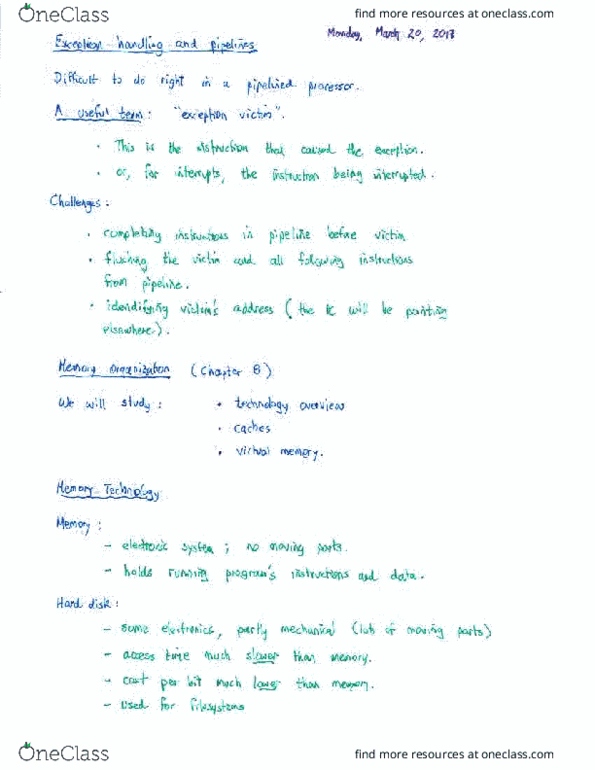 OneClass
find more resources at oneclass.com
Monday, March 20, 2017
Exception handling and pipelines
Difficult to do right in a pipelined processor.
A useful term: "exception victim".
• This is the instruction that caused the exception.
• or, for interrupts, the instruction being interrupted.
Challenges:
• completing instructions in pipeline before victim
• flushing the victim and all following instructions
from pipeline.
• identifying victim's address (the PC will be pointing
elsewhere).
Memory Organization (Chapter 8)
We will study: • technology overview
• caches
• virtual memory.
Memory Technology
Memory:
- electronic system; no moving parts.
- holds running program's instructions and data.
Hard disk:
- some electronics, partly mechanical (lots of moving parts)
- access time much slower than memory.
- cost per bit much lower than memory.
- used for filesystems
OneClass
find more resources at oneclass.com